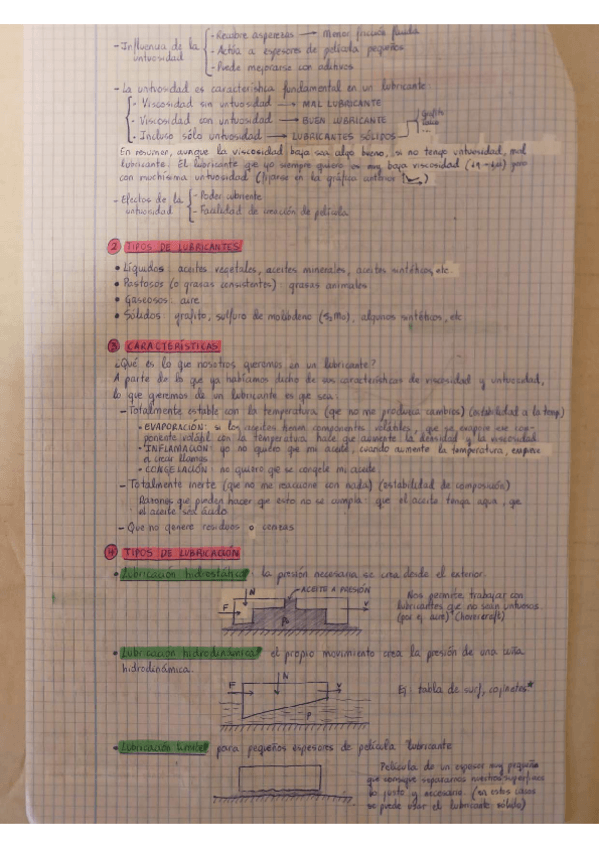 - Influencia de la untuosidad
- Recubre asperezas → Menor fricción fluida
- Actúa a espesores de película pequeños
- Puede mejorarse con aditivos
- La untuosidad es característica fundamental en un lubricante:
- Viscosidad sin untuosidad → MAL LUBRICANTE
- Viscosidad con untuosidad → BUEN LUBRICANTE
- Incluso sólo untuosidad → LUBRICANTES SÓLIDOS
grafito
talco
...
En resumen, aunque la viscosidad baja sea algo bueno, si no tengo untuosidad, mal
lubricante. El lubricante que yo siempre quiero es muy baja viscosidad pero
con muchísima untuosidad (fijarse en la gráfica anterior)
- Efectos de la untuosidad
- Poder cubriente
- Facilidad de creación de película
2 TIPOS DE LUBRICANTES
• Líquidos: aceites vegetales, aceites minerales, aceites sintéticos, etc.
• Pastosos (o grasas consistentes): grasas animales
• Gaseosos: aire
• Sólidos: grafito, sulfuro de molibdeno (S₂Mo), algunos sintéticos, etc
3 CARACTERÍSTICAS
¿Qué es lo que nosotros queremos en un lubricante?
A parte de lo que ya habíamos dicho de sus características de viscosidad y untuosidad,
lo que queremos de un lubricante es que sea:
- Totalmente estable con la temperatura (que no me produzca cambios) (estabilidad a la temp)
• EVAPORACIÓN: si los aceites tienen componentes volátiles, que se evapore ese com-
ponente volátil con la temperatura hace que aumente la densidad y la viscosidad
• INFLAMACIÓN: yo no quiero que mi aceite, cuando aumente la temperatura, empiece
a crear llamas
• CONGELACIÓN: no quiero que se congele mi aceite
- Totalmente inerte (que no me reaccione con nada) (estabilidad de composición)
Razones que pueden hacer que esto no se cumpla: que el aceite tenga agua, que
el aceite sea ácido
- Que no genere residuos o cenizas
4 TIPOS DE LUBRICACIÓN
• Lubricación hidrostática: la presión necesaria se crea desde el exterior.
N
ACEITE A PRESIÓN
F
V
P
Nos permite trabajar con
lubricantes que no sean untuosos
(por ej. aire) (hovercraft)
• Lubricación hidrodinámica: el propio movimiento crea la presión de una cuña
hidrodinámica.
F
N
V
P
Ej: tabla de surf, cojinetes*
• Lubricación límite: para pequeños espesores de película lubricante
Película de un espesor muy pequeño
que consigue separarnos nuestras superficies
lo justo y necesario. (en estos casos
se puede usar el lubricante sólido)